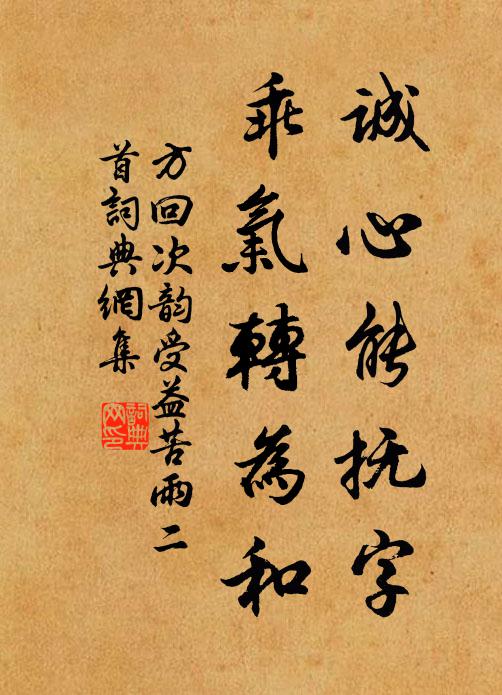 誠心能抚字
乖氣轉為和
方回次韵受益苦雨二
首詞典網集
詞典网印